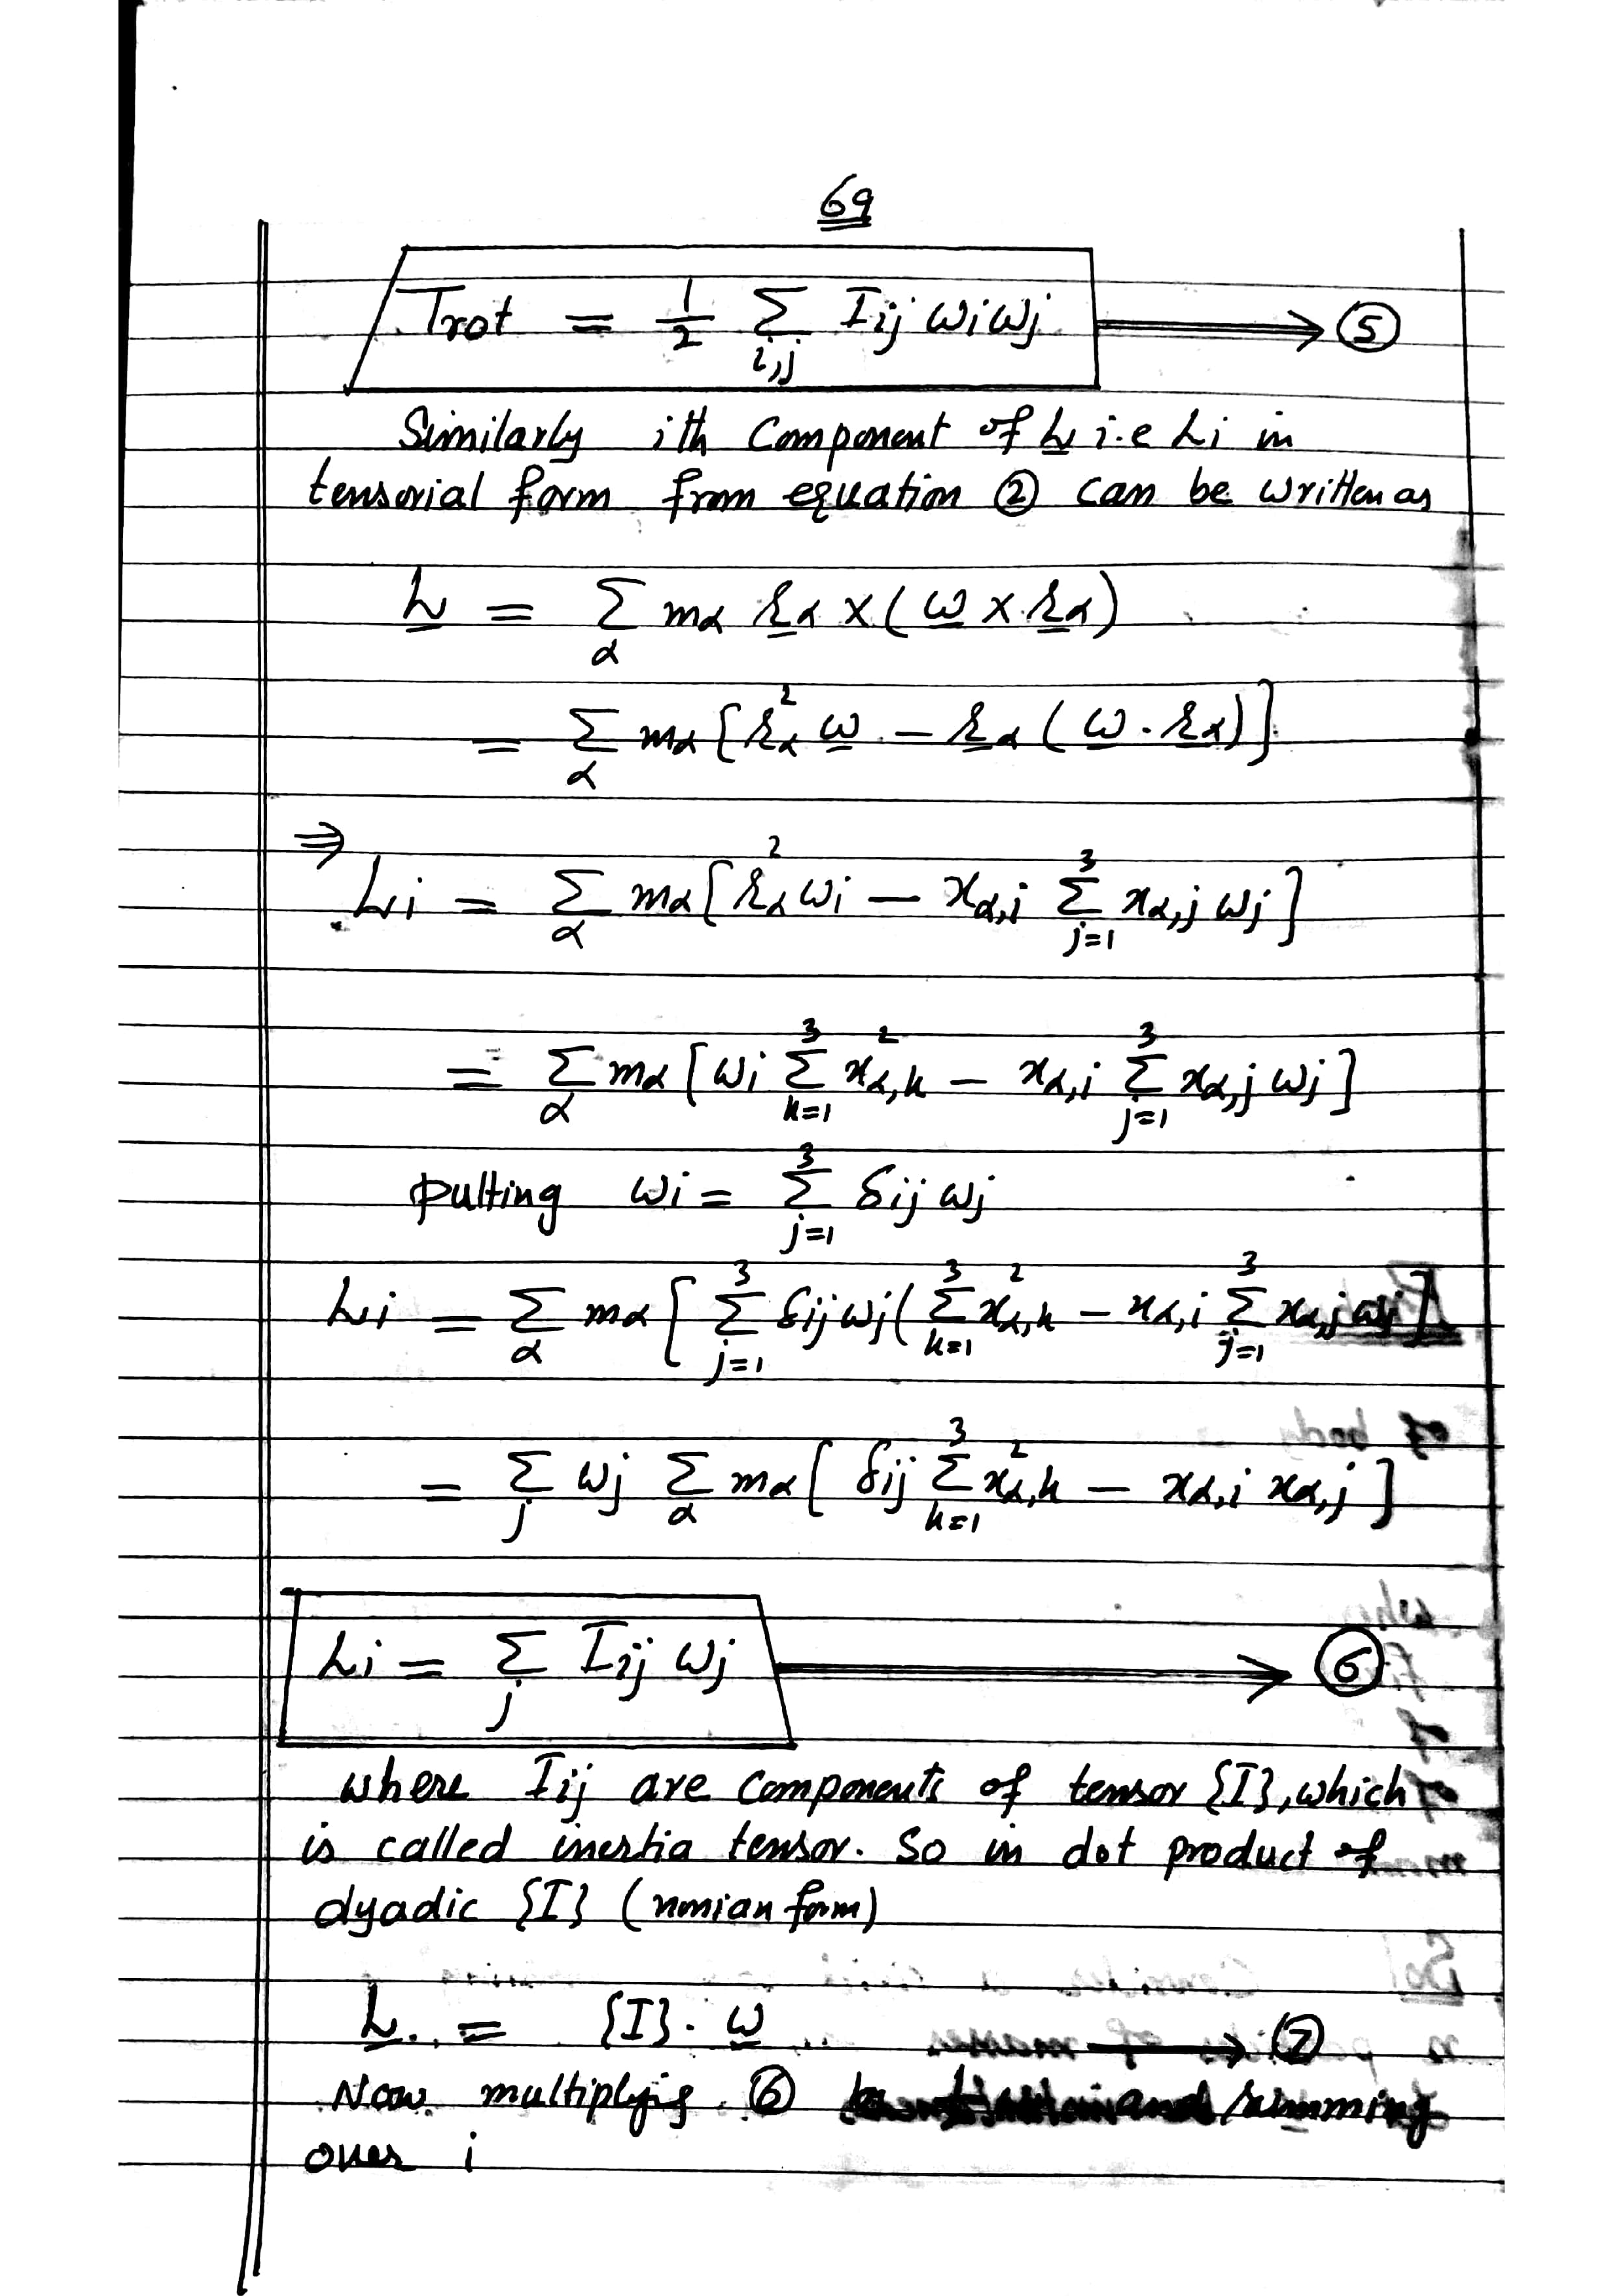 69
Trot = 1/2 Σ_{i,j} Iij ωiωj ⟶ ⑤
Similarly ith Component of L i.e Li in
tensorial form from equation ② can be written as
L = Σ_α mα rα × (ω × rα)
= Σ_α mα [rα² ω − rα (ω . rα)]
⇒
Li = Σ_α mα [rα² ωi − xα,i Σ_{j=1}^{3} xα,j ωj]
= Σ_α mα [ωi Σ_{k=1}^{3} x²α,k − xα,i Σ_{j=1}^{3} xα,j ωj]
putting ωi = Σ_{j=1}^{3} δij ωj
Li = Σ_α mα [Σ_{j=1}^{3} δij ωj (Σ_{k=1}^{3} x²α,k − xα,i Σ_{j=1}^{3} xα,j ωj]
= Σ_j ωj Σ_α mα [δij Σ_{k=1}^{3} x²α,k − xα,i xα,j]
Li = Σ_j Iij ωj ⟶ ⑥
where Iij are components of tensor {I}, which
is called inertia tensor. So in dot product of
dyadic {I} (nonian form)
L = {I} . ω ⟶ ⑦
Now multiplying ⑥ and summing
over i